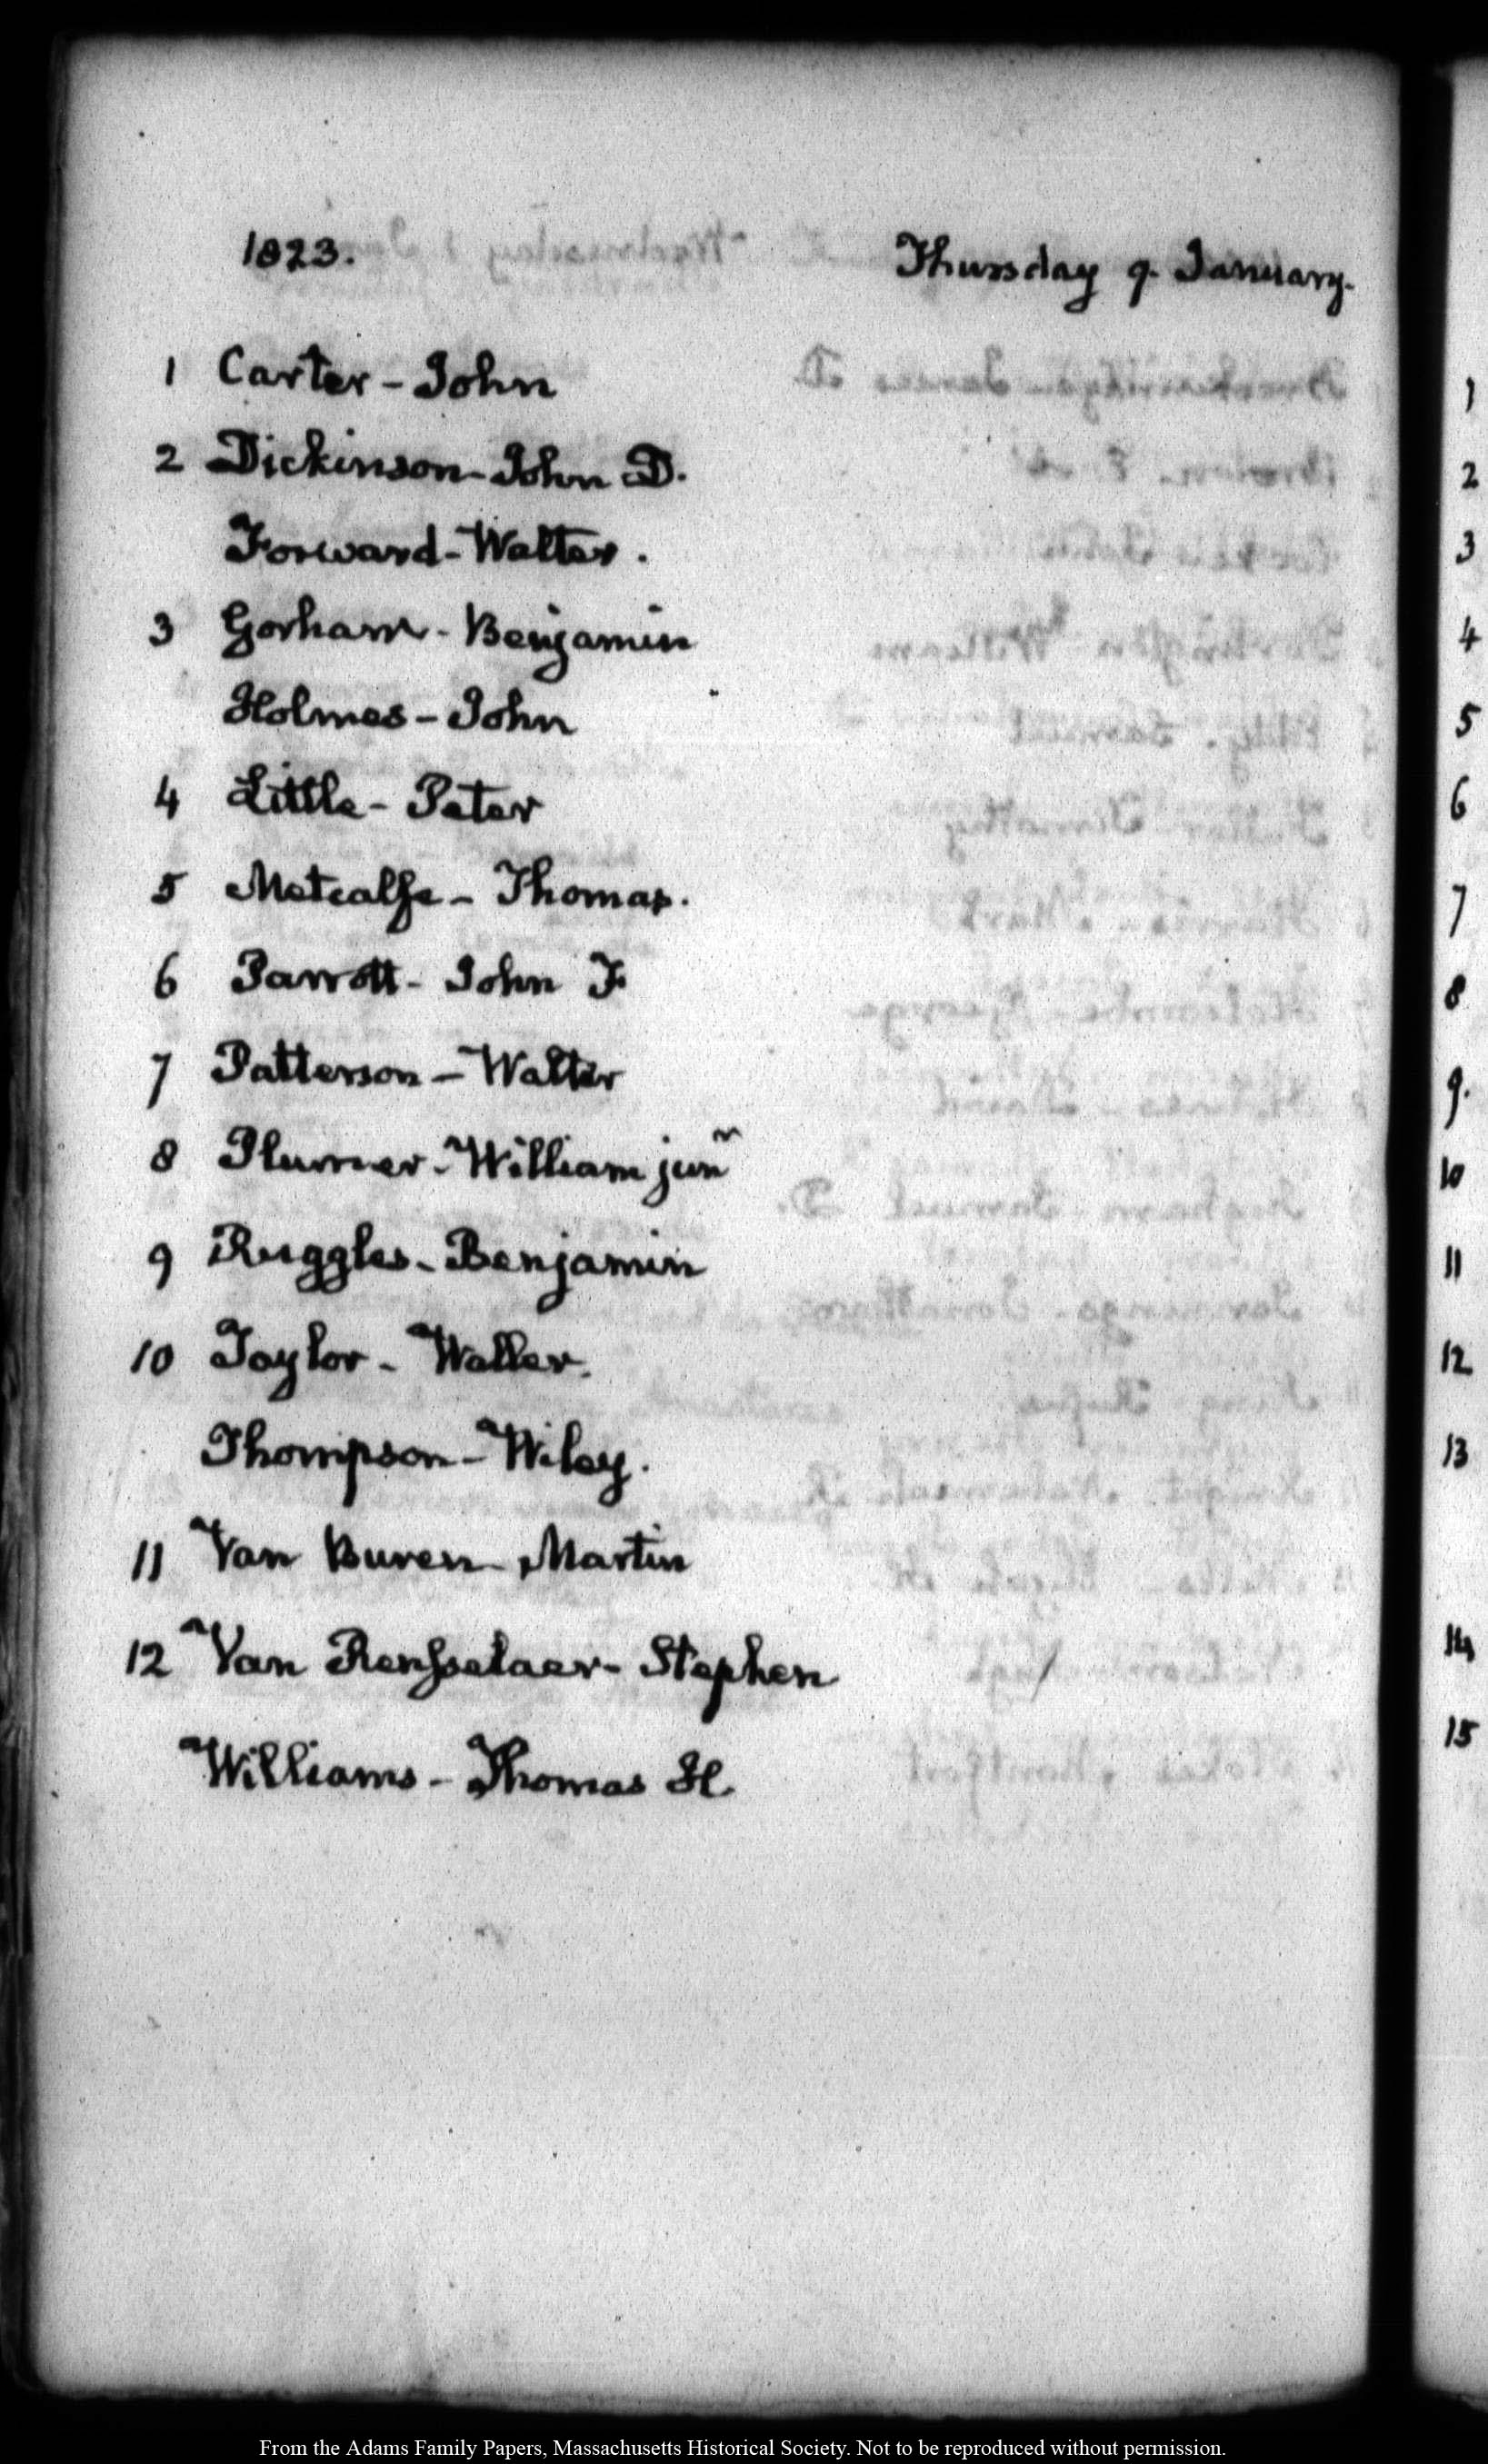 1823. Thursday 9. January.
1 Carter - John
2 Dickinson - John D.
Forward - Walter.
3 Gorham - Benjamin
Holmes - John
4 Little - Peter
5 Metcalfe - Thomas.
6 Parrott - John F.
7 Patterson - Walter
8 Plumer - William junr
9 Ruggles - Benjamin
10 Taylor - Waller.
Thompson - Wiley.
11 Van Buren - Martin
12 Van Rensselaer - Stephen
Williams - Thomas H.
1
2
3
4
5
6
7
8
9.
10
11
12
13
14
15
From the Adams Family Papers, Massachusetts Historical Society. Not to be reproduced without permission.